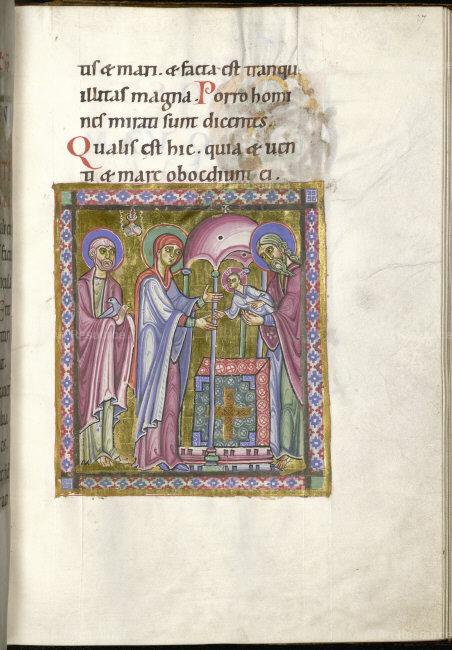 tis & mari. & facta est tranqui
illitas magna. Porro homi
nes mirati sunt dicentes.
Qualis est hic. quia & uen
ti & mare oboediunt ei.